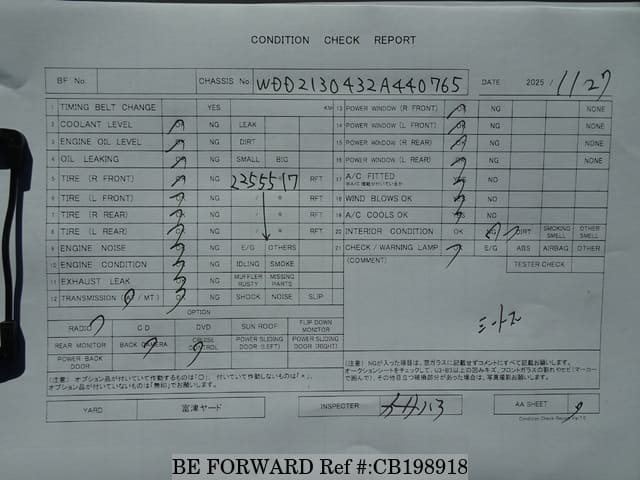 CONDITION CHECK REPORT
BF No. CHASSIS No WDD2130432A440765 DATE 2025 / 11.27
1 TIMING BELT CHANGE YES KM
2 COOLANT LEVEL OK NG LEAK
3 ENGINE OIL LEVEL OK NG DIRT
4 OIL LEAKING OK NG SMALL BIG
5 TIRE (R FRONT) OK NG 2255517 RFT
6 TIRE (L FRONT) OK NG / * RFT
7 TIRE (R REAR) OK NG / * RFT
8 TIRE (L REAR) OK NG / * RFT
9 ENGINE NOISE OK NG E/G OTHERS
10 ENGINE CONDITION OK NG IDLING SMOKE
11 EXHAUST LEAK OK NG MUFFLER RUSTY MISSING PARTS
12 TRANSMISSION (AT / MT) OK NG SHOCK NOISE SLIP
OPTION
RADIO CD DVD SUN ROOF FLIP DOWN MONITOR
REAR MONITOR BACK CAMERA CRUISE CONTROL POWER SLIDING DOOR (LEFT) POWER SLIDING DOOR (RIGHT)
POWER BACK DOOR
(注意) オプション品が付いていて作動するものは「○」、付いていて作動しないものは「×」、
オプション品が付いていないものは「無印」でお願いします。
13 POWER WINDOW (R FRONT) OK NG NONE
14 POWER WINDOW (L FRONT) OK NG NONE
15 POWER WINDOW (R REAR) OK NG NONE
16 POWER WINDOW (L REAR) OK NG NONE
17 A/C FITTED YES NO
18 WIND BLOWS OK YES NO
19 A/C COOLS OK YES NO
20 INTERIOR CONDITION OK NG DIRT SMOKING SMELL OTHER SMELL
21 CHECK / WARNING LAMP E/G ABS AIRBAG OTHER
(COMMENT) TESTER CHECK
(注意) NGが入った項目は、窓ガラスに記載せずコメントにすべて記載お願いします。
オークションシートをチェックして、U3・B3以上の凹みキズ、フロントガラスの割れやヒビ(マーカー
で囲んで)、その他目立つ破損部分があった場合は、写真撮影お願いします。
YARD 富津ヤード INSPECTER AA SHEET
Condition Check Report Ver7.0
BE FORWARD Ref #:CB198918